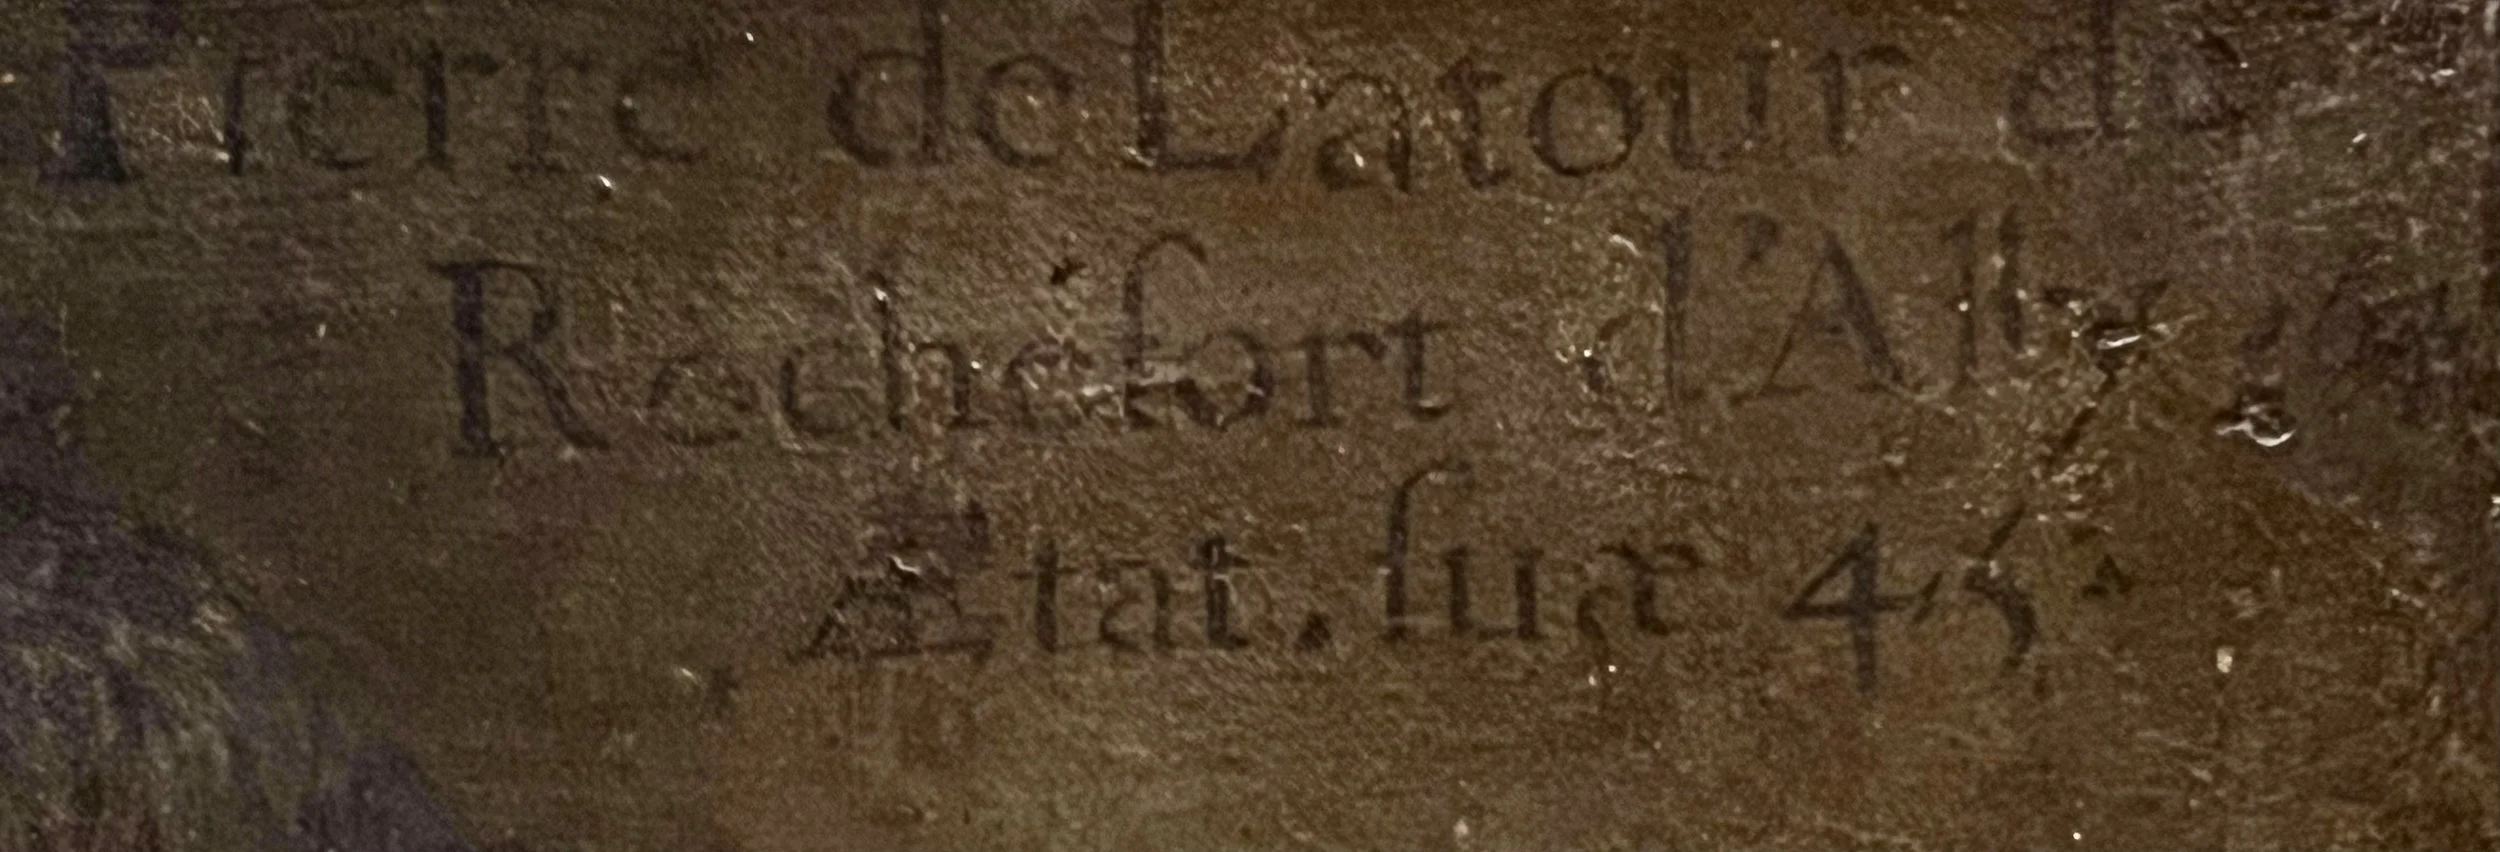 Pierre de Latour de
Rechefort d'Ally
Ætat. suæ 45